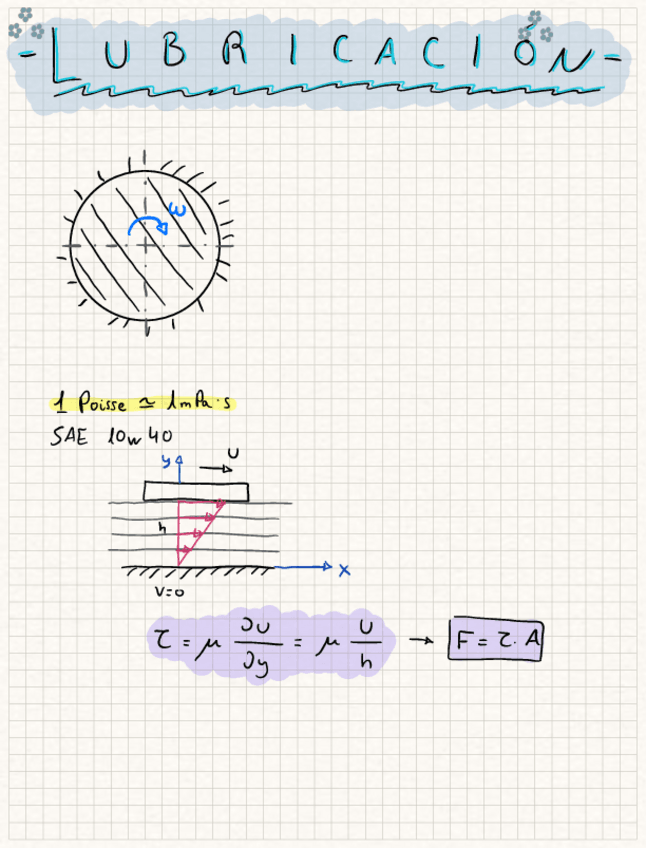 -LUBRICACIÓN-
ω
1 Poisse ≃ 1mPa·s
SAE 10w40
y U
h
x
V=0
τ = μ ∂U/∂y = μ U/h → F = τ·A